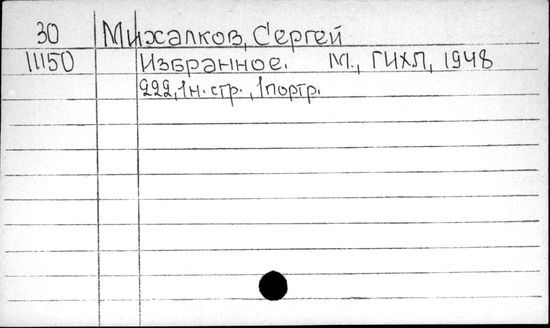 30 Михалков, Сергей
11150 Избранное. М., ГИХЛ, 1948
222, 1 н. стр., 1 портр.